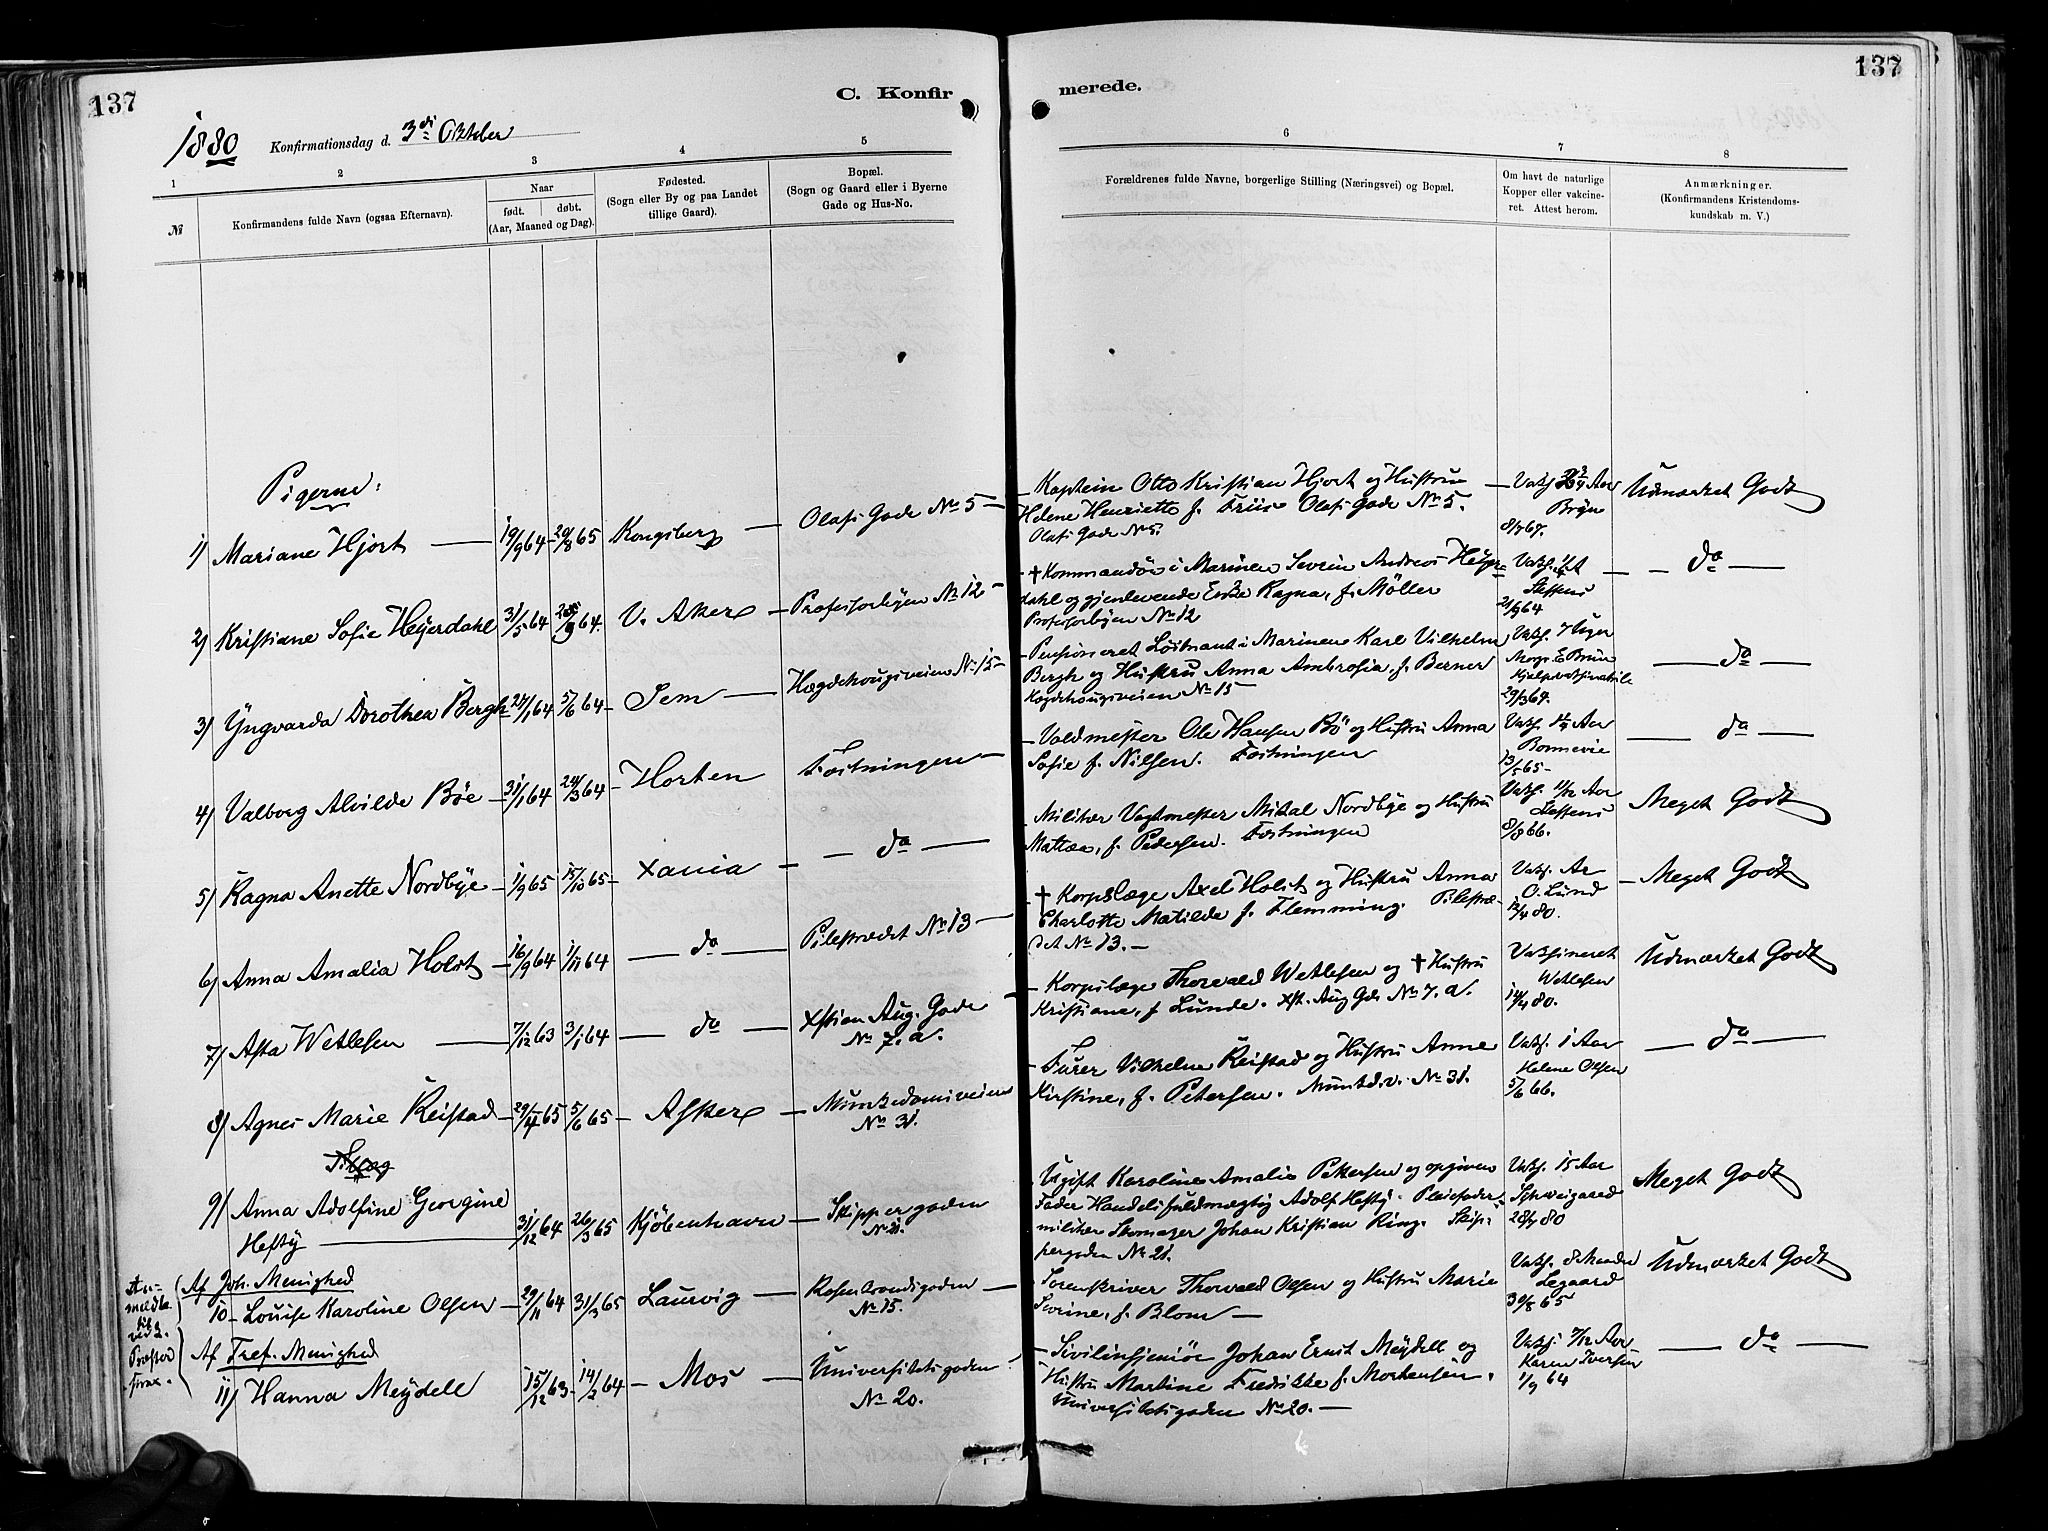 137
C. Konfirmerede.
137
1880 Konfirmationsdag d. 3di Oktober
1 2 3 4 5 6 7 8
№
Konfirmandens fulde Navn (ogsaa Efternavn).
Naar
født. døbt.
(Aar, Maaned og Dag).
Fødested.
(Sogn eller By og paa Landet
tillige Gaard).
Bopæl.
(Sogn og Gaard eller i Byerne
Gade og Hus-No.
Forældrenes fulde Navne, borgerlige Stilling (Næringsvei) og Bopæl.
Om havt de naturlige
Kopper eller vakcine-
ret. Attest herom.
Anmærkninger.
(Konfirmandens Kristendoms-
kundskab m. V.)
Pigerne:
1) Mariane Hjort — 19/9 64 — 20/8 65 Kongsberg — Olafs Gade No 5 —
Kaptein Otto Kristian Hjort og Hustru
Helene Henriette f. Friis Olafs Gade No 5.
Olafs Gade No 5.
Brŷn
8/7 67.
Udmærket Godt
2) Kristiane Sofie Heyerdahl 31/5 64 64. V. Aker — Professorbyen No 12 —
† Kommandør i Marinen Severin Andreas Heyer-
dahl og gjenlevende Enke Ragna, f. Møller
Professorbyen No 12
Steffens
21/9 64
— do —
3) Yngvarda Dorothea Bergh 24/1 64 5/6 64 — Sem — Hægdehougsveien No 15 —
Pensioneret Løitnant i Marinen Karl Vilhelm
Bergh og Hustru Anna Ambrosia, f. Berner
Hægdehougsveien No 15
Vaks. 7 Uger
29/3 64.
— do —
4) Valborg Alvilde Böe — 31/1 64 24/3 64 — Horten Fæstningen —
Valdmester Ole Hansen Bö og Hustru Anna
Sofie f. Nilsen. Fæstningen
Bonnevie
13/5 65 —
— do —
5) Ragna Anette Nordbye — 1/9 65 15/10 65 — Xania — do —
Militær Vagtmester Mikal Nordbye og Hustru
Mathea, f. Pedersen. Fæstningen
Vaks. 11/12 Aar
Steffens
8/8 66.
Meget Godt
6) Anna Amalia Holst — 16/9 64 1/11 64 — do — Pilestrædet No 13 —
† Korpslæge Axel Holst og Hustru Anna
Charlotte Matilde f. Flemming. Pilestræ-
det No 13. —
Vaks. Aar
O. Lund
12/4 80.
— Meget Godt
7) Asta Wetlesen — 7/12 63 3/1 64 — do — Xstian Aug. Gade
No 7. a.
Korpslæge Thorvald Wetlesen og † Hustru
Kristiane, f. Lunde. Xst. Aug Gde No 7. a.
Vaksineret
Wetlesen
14/4 80.
Udmærket Godt
8) Agnes Marie Reistad — 29/4 65 5/6 65 — Asker — Munkedamsveien
No 31.
Furer Vilhelm Reistad og Hustru Anne
Kirstine, f. Petersen. Munkd.v. No 31.
Vaks. 1 Aar
Helene Olsen
5/6 66.
— do —
9) Anna Adolfine Georgine
Hefty — 31/12 64 26/3 65 Kjöbenhavn — Skippergaden
No 21.
Ugift Karoline Amalie Petersen og opgiven
Fader Handelsfuldmægtig Adolf Hefty. Pleiefader
militær Skomager Johan Kristian Ring. Skip-
pergaden No 21.
Vaks. 15 Aar
Schweigaard
28/4 80
Meget Godt
An-
meldte
til
Præster
Af Joh. Menighed
10 — Louise Karoline Olsen — 29/11 64 31/3 65 Laurvig — Rosenkrandsgaden —
No 15.
Sorenskriver Thorvald Olsen og Hustru Marie
Severine, f. Blom —
Vaks. 8 Maaneder
Legaard
30/8 65
Udmærket Godt
Af Tref. Menighed
11) Hanna Meydell 15/12 63 — 14/2 64 — Mos — Universitetsgaden
No 20.
Sivilinsjeniør Johan Ernst Meydell og
Hustru Martine Fredrikke f. Mortensen.
Universitetsgaden No 20. —
Vaks. 7/12 Aar
Karen Iversen
1/9 64
— do —